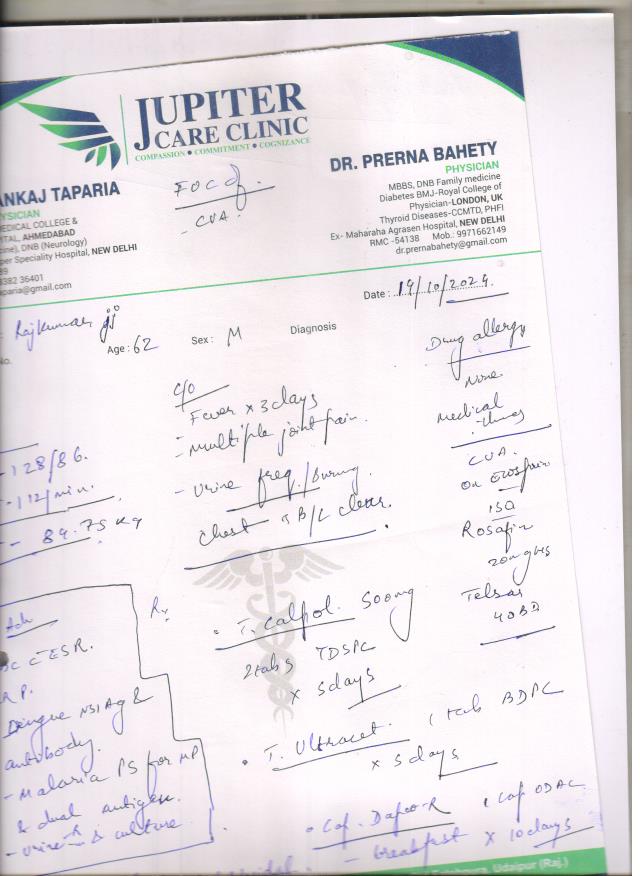 JUPITER
CARE CLINIC
COMPASSION • COMMITMENT • COGNIZANCE
ANKAJ TAPARIA
YSICIAN
MEDICAL COLLEGE &
ITAL, AHMEDABAD
cine), DNB (Neurology)
per Speciality Hospital, NEW DELHI
89
3382 36401
aparia@gmail.com
CVA
DR. PRERNA BAHETY
PHYSICIAN
MBBS, DNB Family medicine
Diabetes BMJ-Royal College of
Physician-LONDON, UK
Thyroid Diseases-CCMTD, PHFI
Ex- Maharaha Agrasen Hospital, NEW DELHI
RMC -54138 Mob.: 9971662149
dr.prernabahety@gmail.com
Date : 19/10/2024.
: Rajkumar ji
No.
Age : 62 Sex : M Diagnosis
Drug allergy
None
Medical
CVA.
on Ecospirin
150
Rosafin
20mg HS
Telsar
40 BD
- 128/86.
- 112/min.
- 84.75 kg
c/o
Fever x 3 days
- Multiple joint pain.
- Urine freq./Burning.
Chest B/L clear.
Adv
BC C ESR.
RP.
Dengue NS1 Ag &
antibody.
- Malaria PS for MP
& dual antigen.
- Urine R & culture
Rx
• T. Calpol. 500mg
2tabs TDSPC
x 5 days
• T. Ultracet. 1 tab BDPC
x 5 days
• Cap. Dapoo-R 1 cap ODAC
- breakfast x 10 days
Udaipur (Raj.)